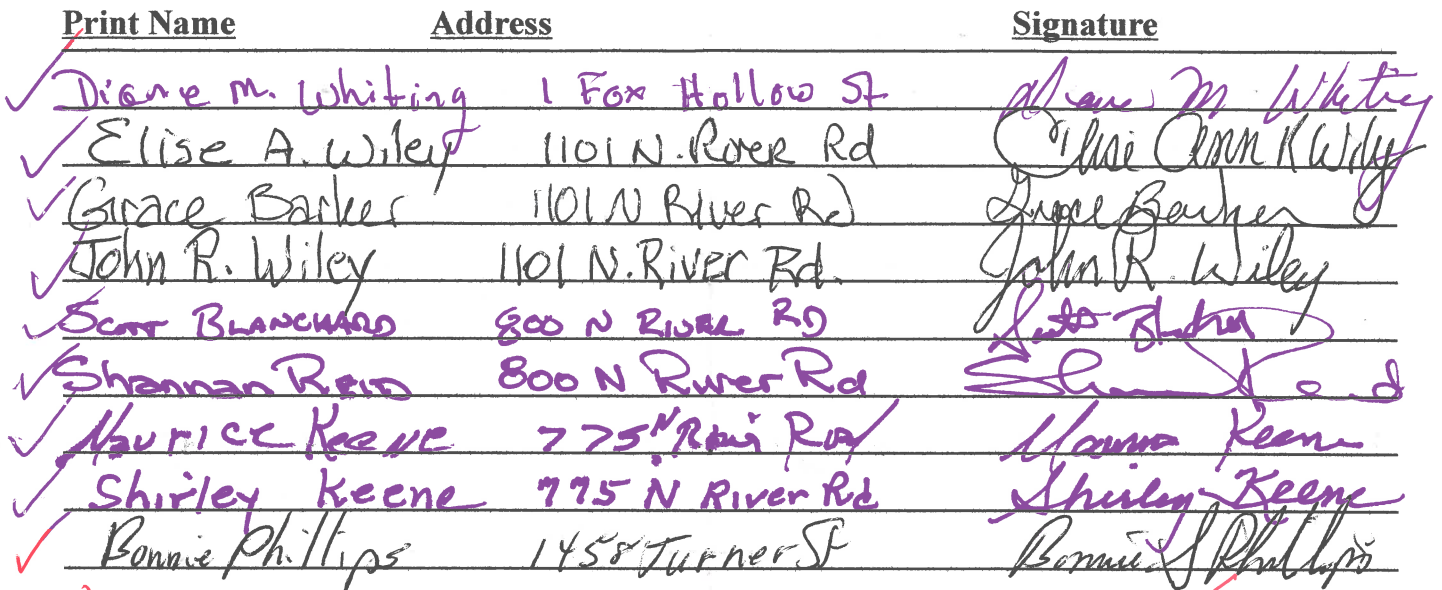 Print Name Address Signature
Diane M. Whiting 1 Fox Hollow St Diane M Whiting
Elise A. Wiley 1101 N. River Rd Elise Ann K Wiley
Grace Barker 1101 N River Rd Grace Barker
John R. Wiley 1101 N. River Rd. John R. Wiley
Scott BLANCHARD 800 N RIVER RD Scott
Shannan REID 800 N River Rd
Maurice Keene 775 N River Rd Keene
Shirley Keene 775 N River Rd Shirley Keene
Bonnie Phillips 1458 Turner St Bonnie S Phillips